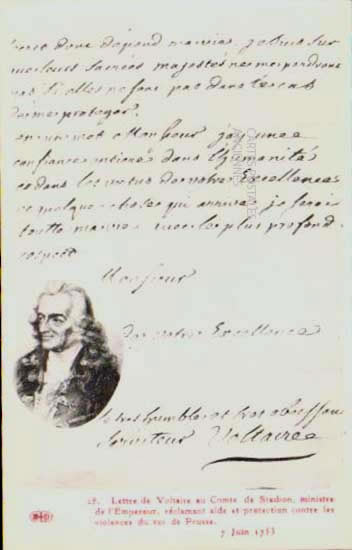 dont dépend ma vie. je suis sur
que leurs sacrées majestés ne me
pas si elles ne sont pas dans le cas
de me proteger.
en un mot Monsieur jay une
confiance entiere dans l'humanité
et dans les vertus de votre Excellence
et quelque chose qui arrive je serai
toutte ma vie avec le plus profond
respect
Monsieur
De votre Excellence
le tres humble et tres obeissant
serviteur Voltaire
CARTES POSTALES
ANCIENNES
25. Lettre de Voltaire au Comte de Stadion, ministre
de l'Empereur, réclamant aide et protection contre les
violences du roi de Prusse.
7 Juin 1753
ELD